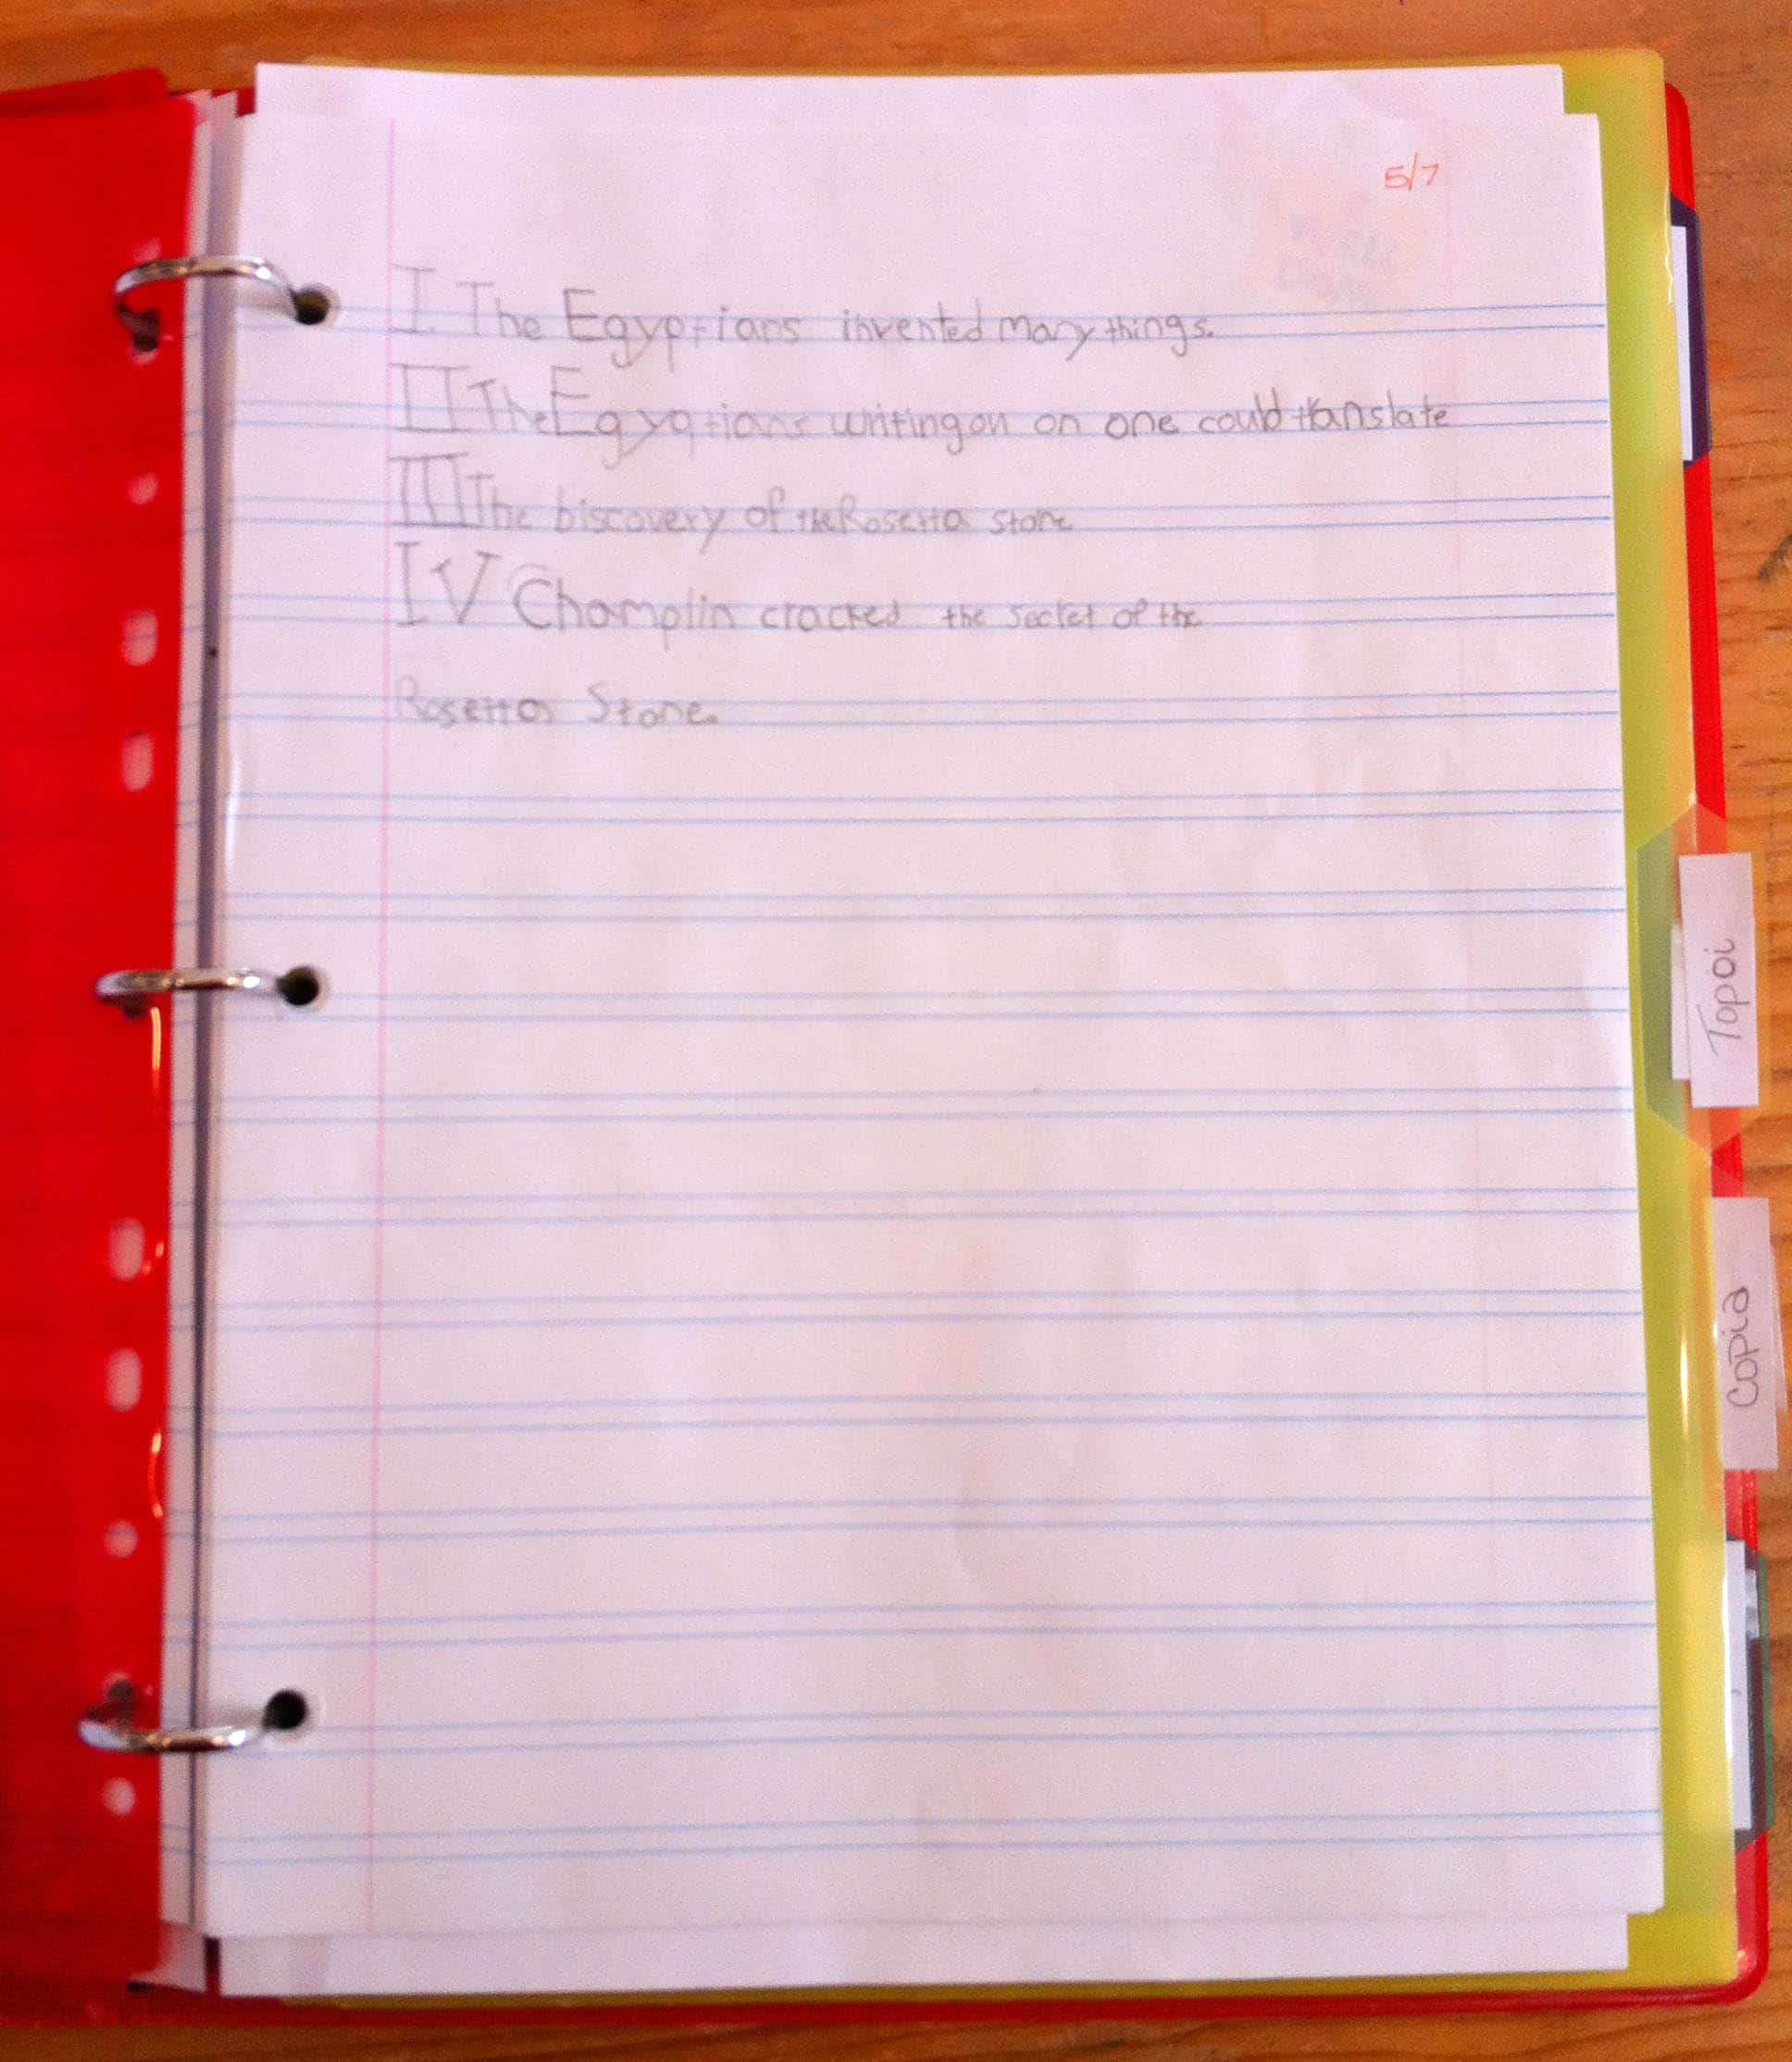 5/7
I. The Egyptians invented many things.
II The Egyqtians writing on on one could translate
III The biscovery of the Rosetta stone
IV Champlin cracked the secret of the
Rosetta Stone.
Topoi
Copia